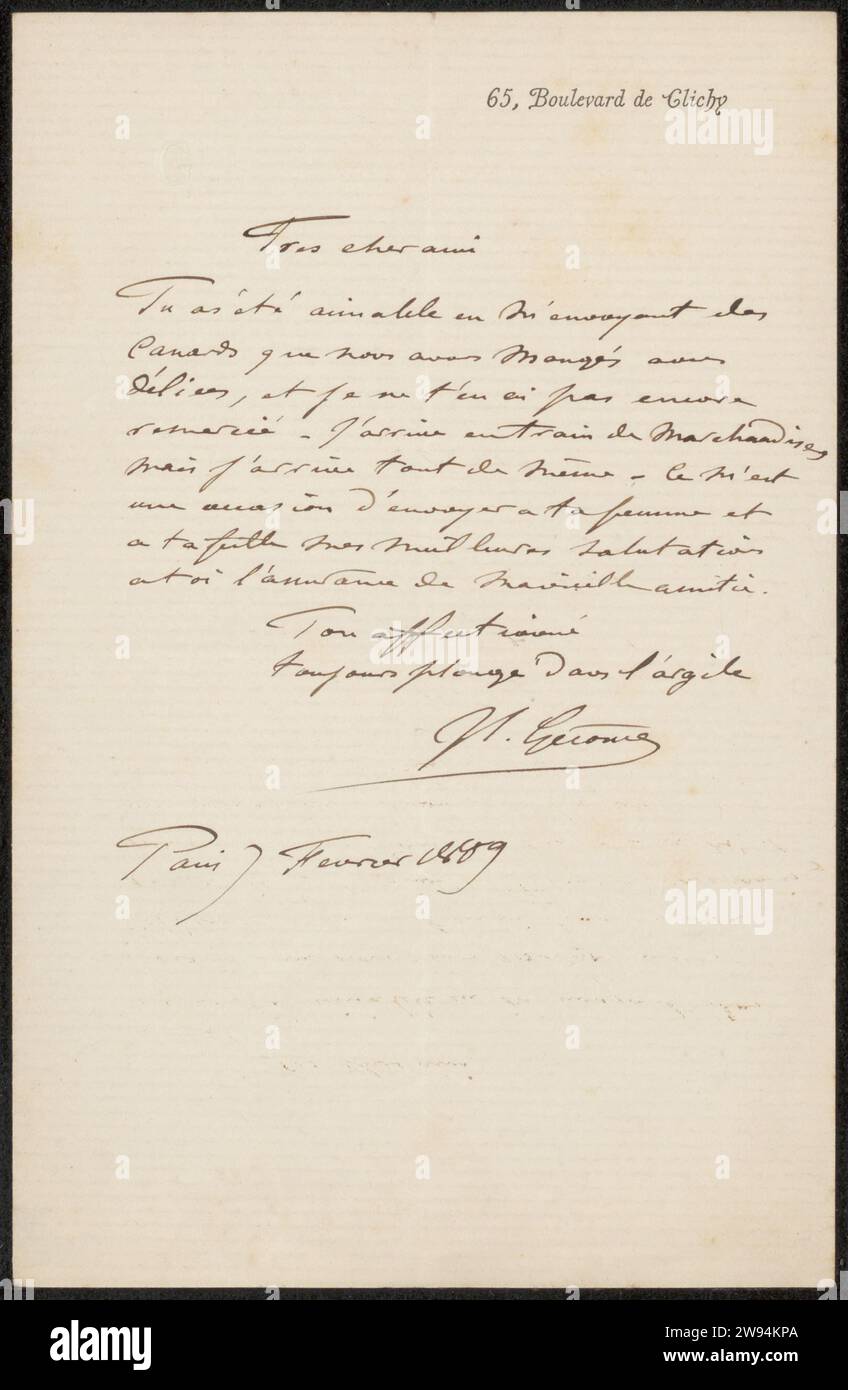 65, Boulevard de Clichy
Tres cher ami
Tu as été aimable en m'envoyant des
Canards que nous avons mangés avec
délices, et je ne t'en ai pas encore
remercié - J'arrive en train de Marchandises
mais j'arrive tout de même - Ce m'est
une occasion d'envoyer a ta femme et
a ta fille mes meilleures salutations
a toi l'assurance de ma vieille amitié.
Ton affectionné
toujours plongé dans l'argile
JL. Gerome
Paris 7 Fevrier 1889
alamy
Image ID: 2W94KPA
www.alamy.com